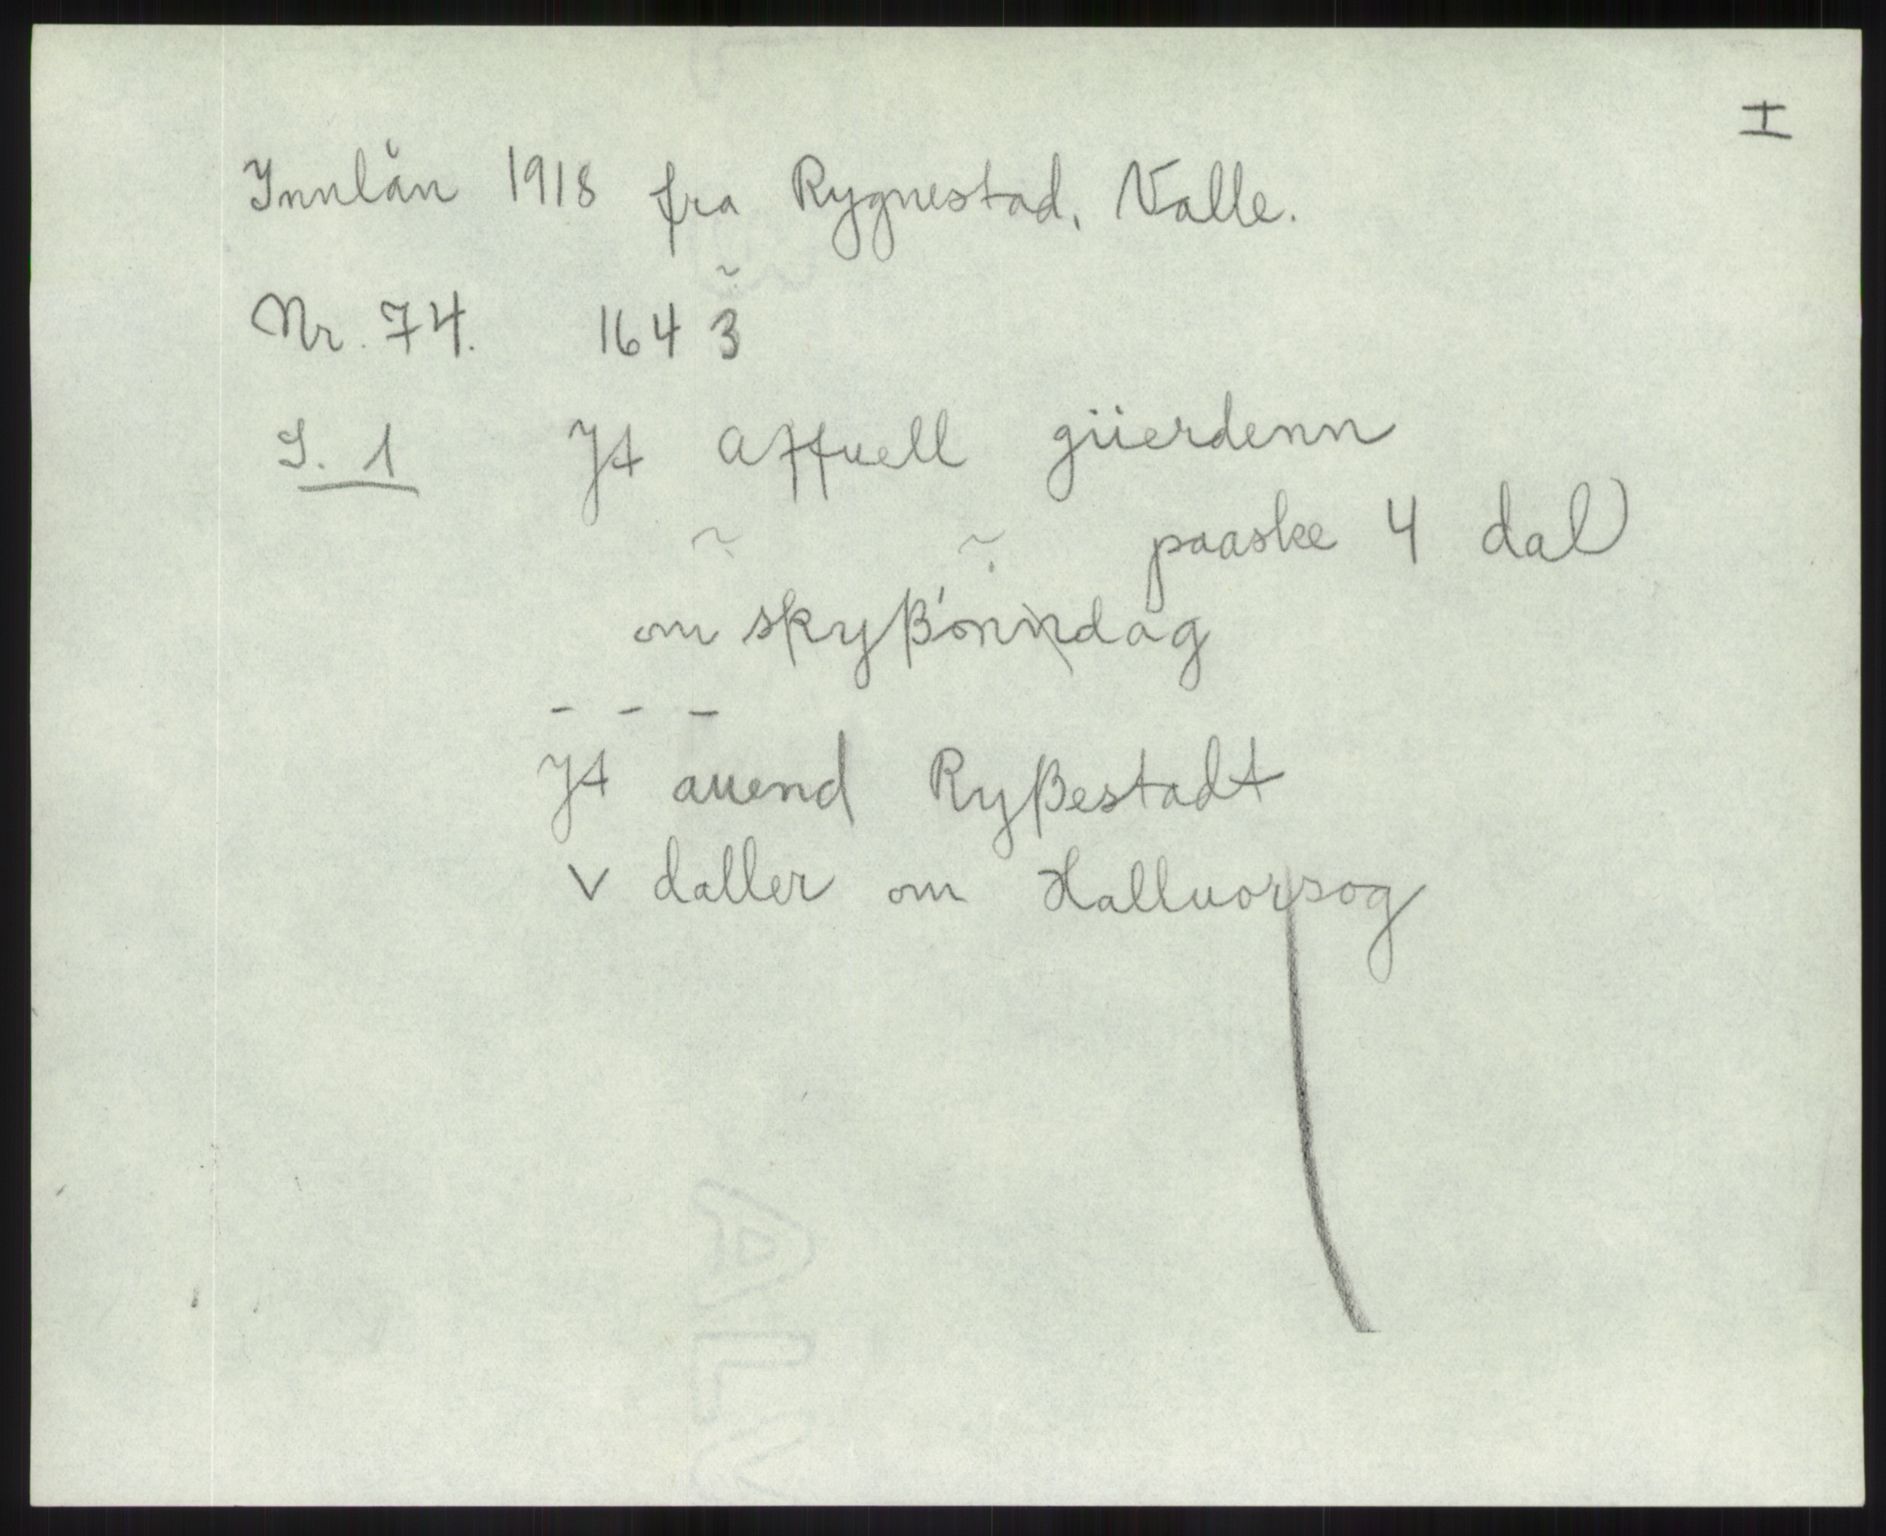 I
Innlån 1918 fra Rygnestad, Valle.
Nr. 74. 1643
S. 1 Jt Affuell güerdenn
paaske 4 dal
om skyßonndag
- - -
Jt auend Ryßestadt
V daller om Halluorsog